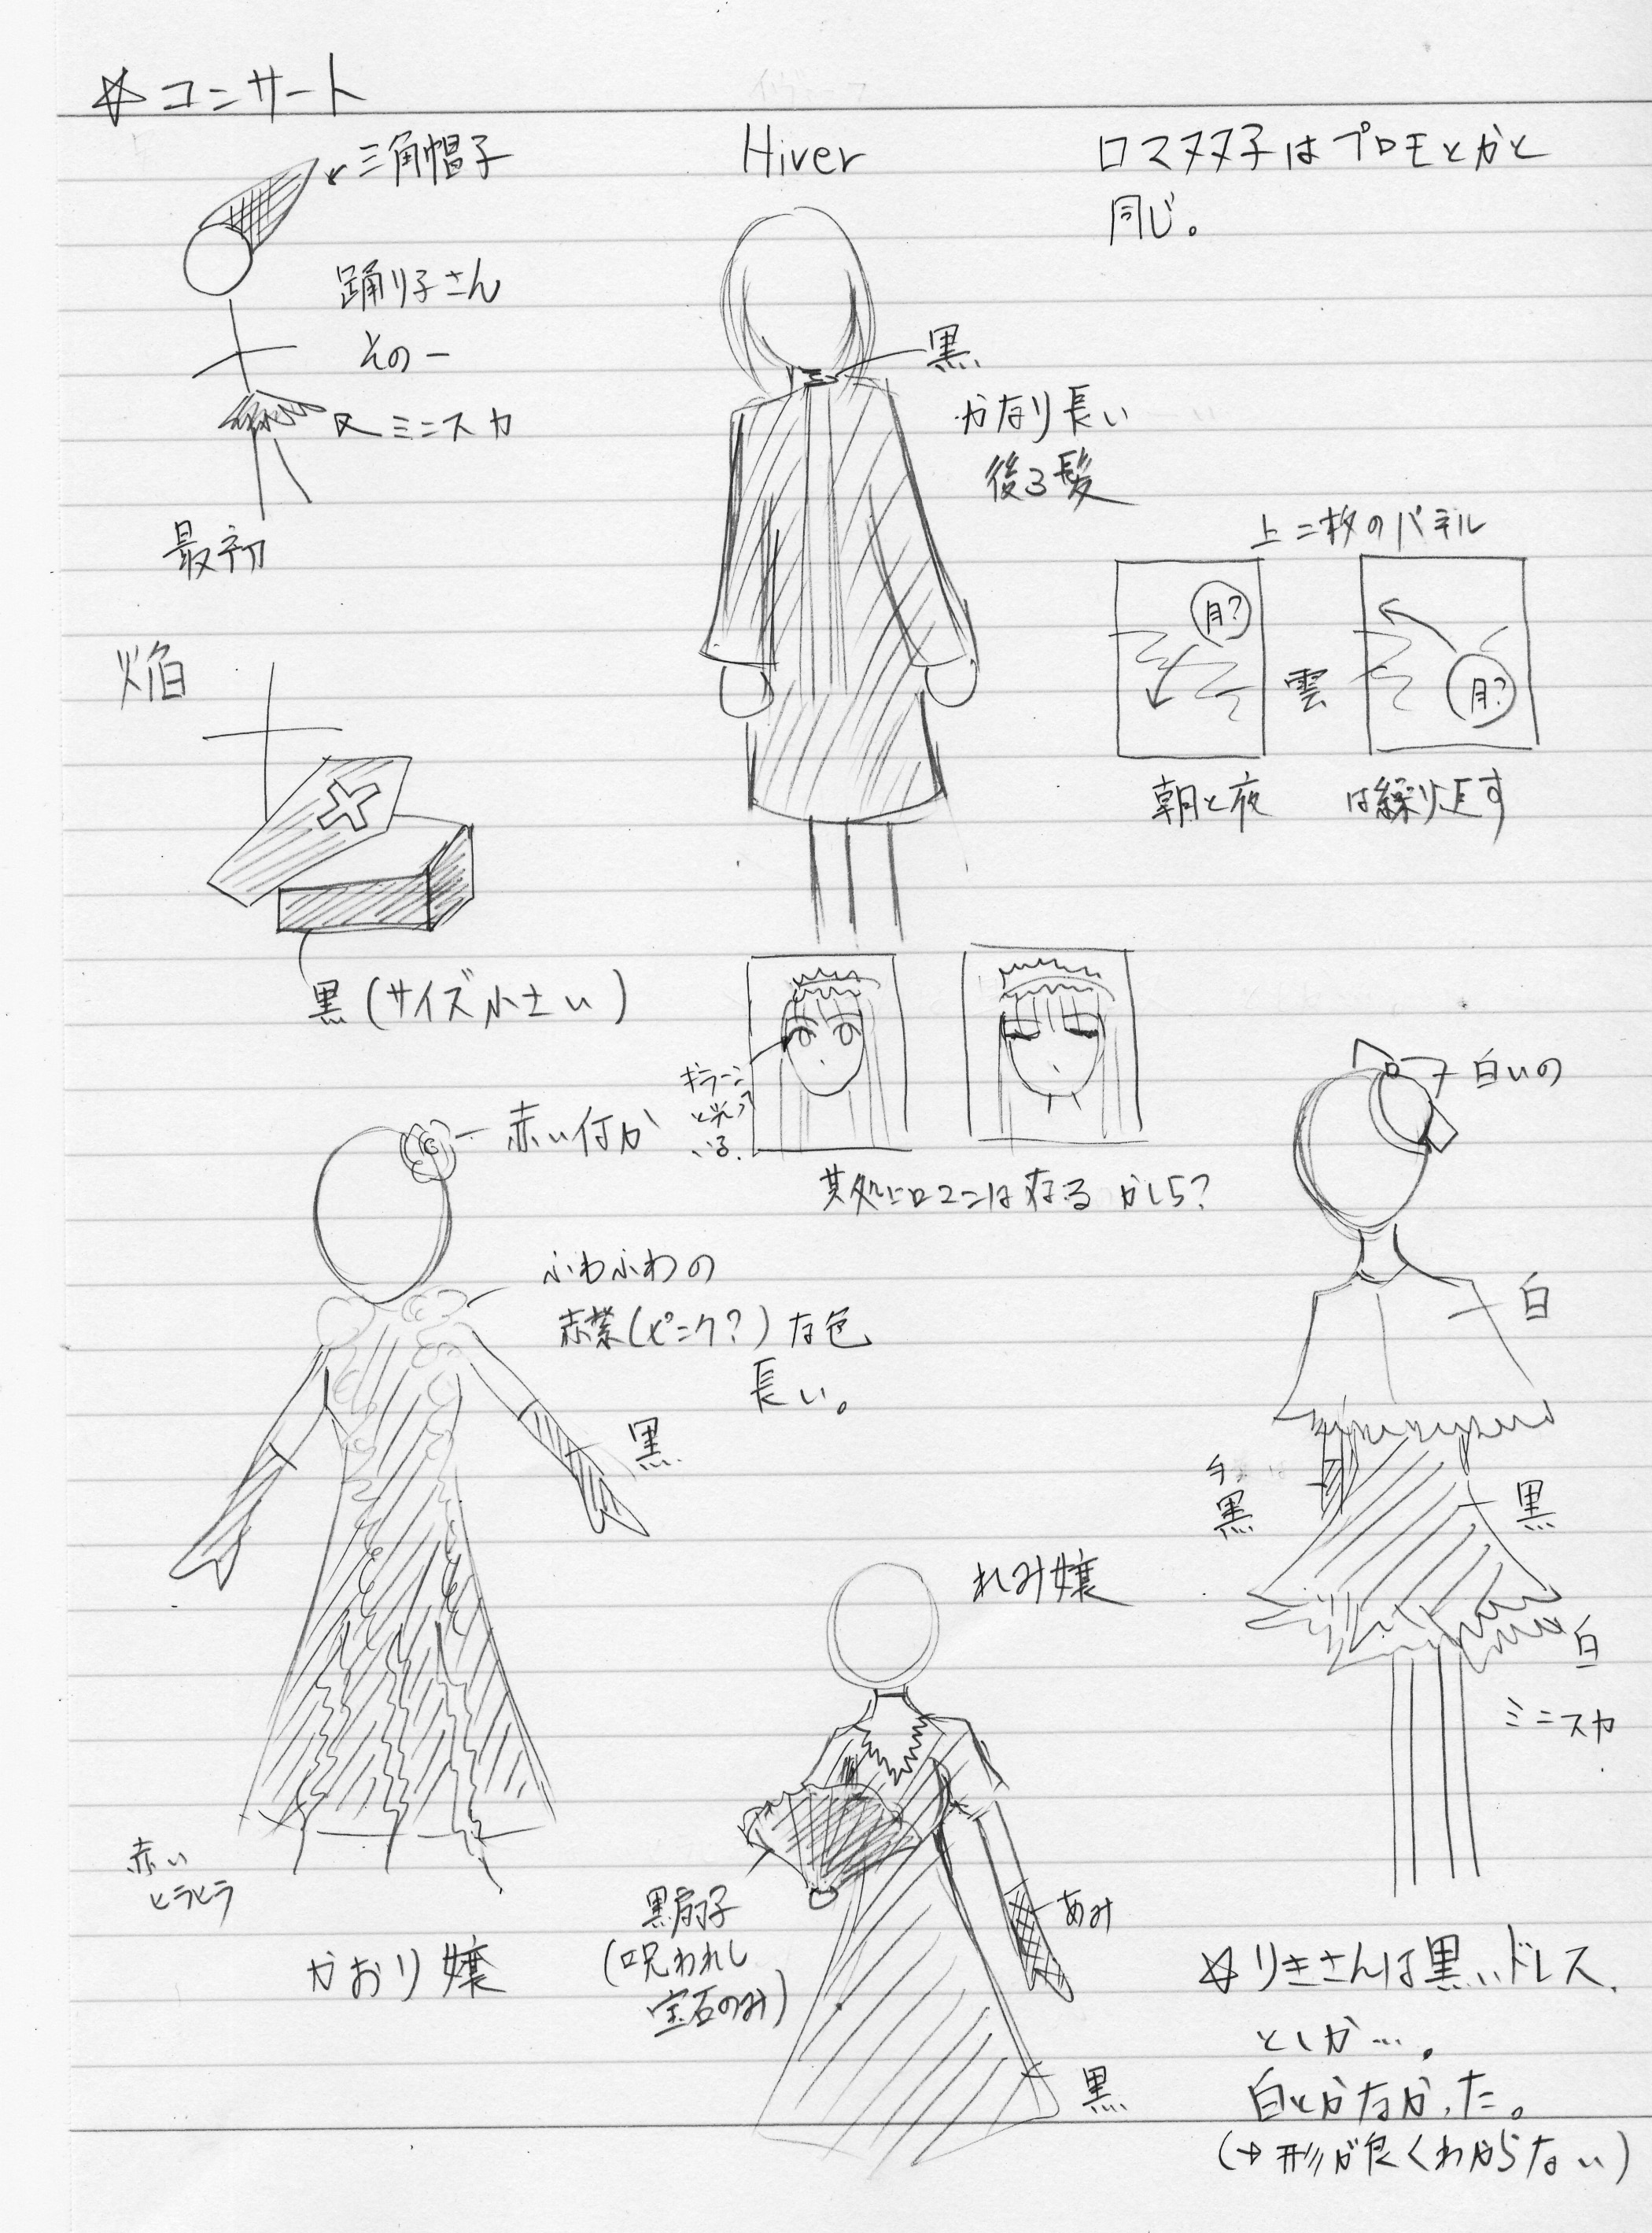 ☆コンサート
三角帽子
踊り子さん
その一
ミニスカ
最初
Hiver
黒
かなり長い
後ろ髪
ロマヌヌ子はプロモとかと
同じ。
上二枚のパネル
月?
雲
月?
朝と夜
は繰り返す
焔
黒(サイズ小さい)
ギラーン
と光って
いる。
其処にロマンは在るかしら?
赤い何か
ふわふわの
赤紫(ピンク?)な色
長い。
黒
赤い
ヒラヒラ
かおり嬢
れみ嬢
黒扇子
(呪われし
宝石のみ)
あみ
黒
白いの
白
黒
黒
白
ミニスカ
☆りきさんは黒いドレス
としか…。
白とかなかった。
(→形が良くわからない)